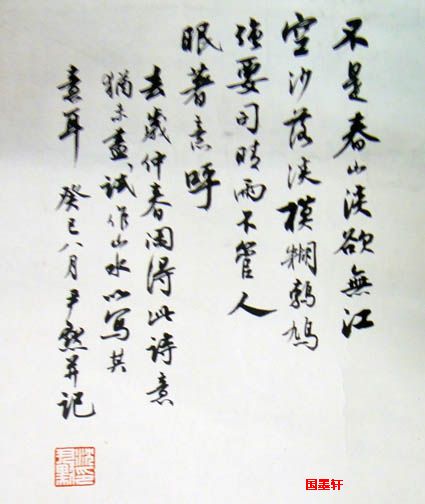 不是春山淡欲無江
空沙落淡模糊鵓鳩
強要司晴雨不管人
眠著意呼
去歲仲春圖得此詩意
猶未畫試作山水以写其
意耳 癸巳八月尹默并記
国墨轩